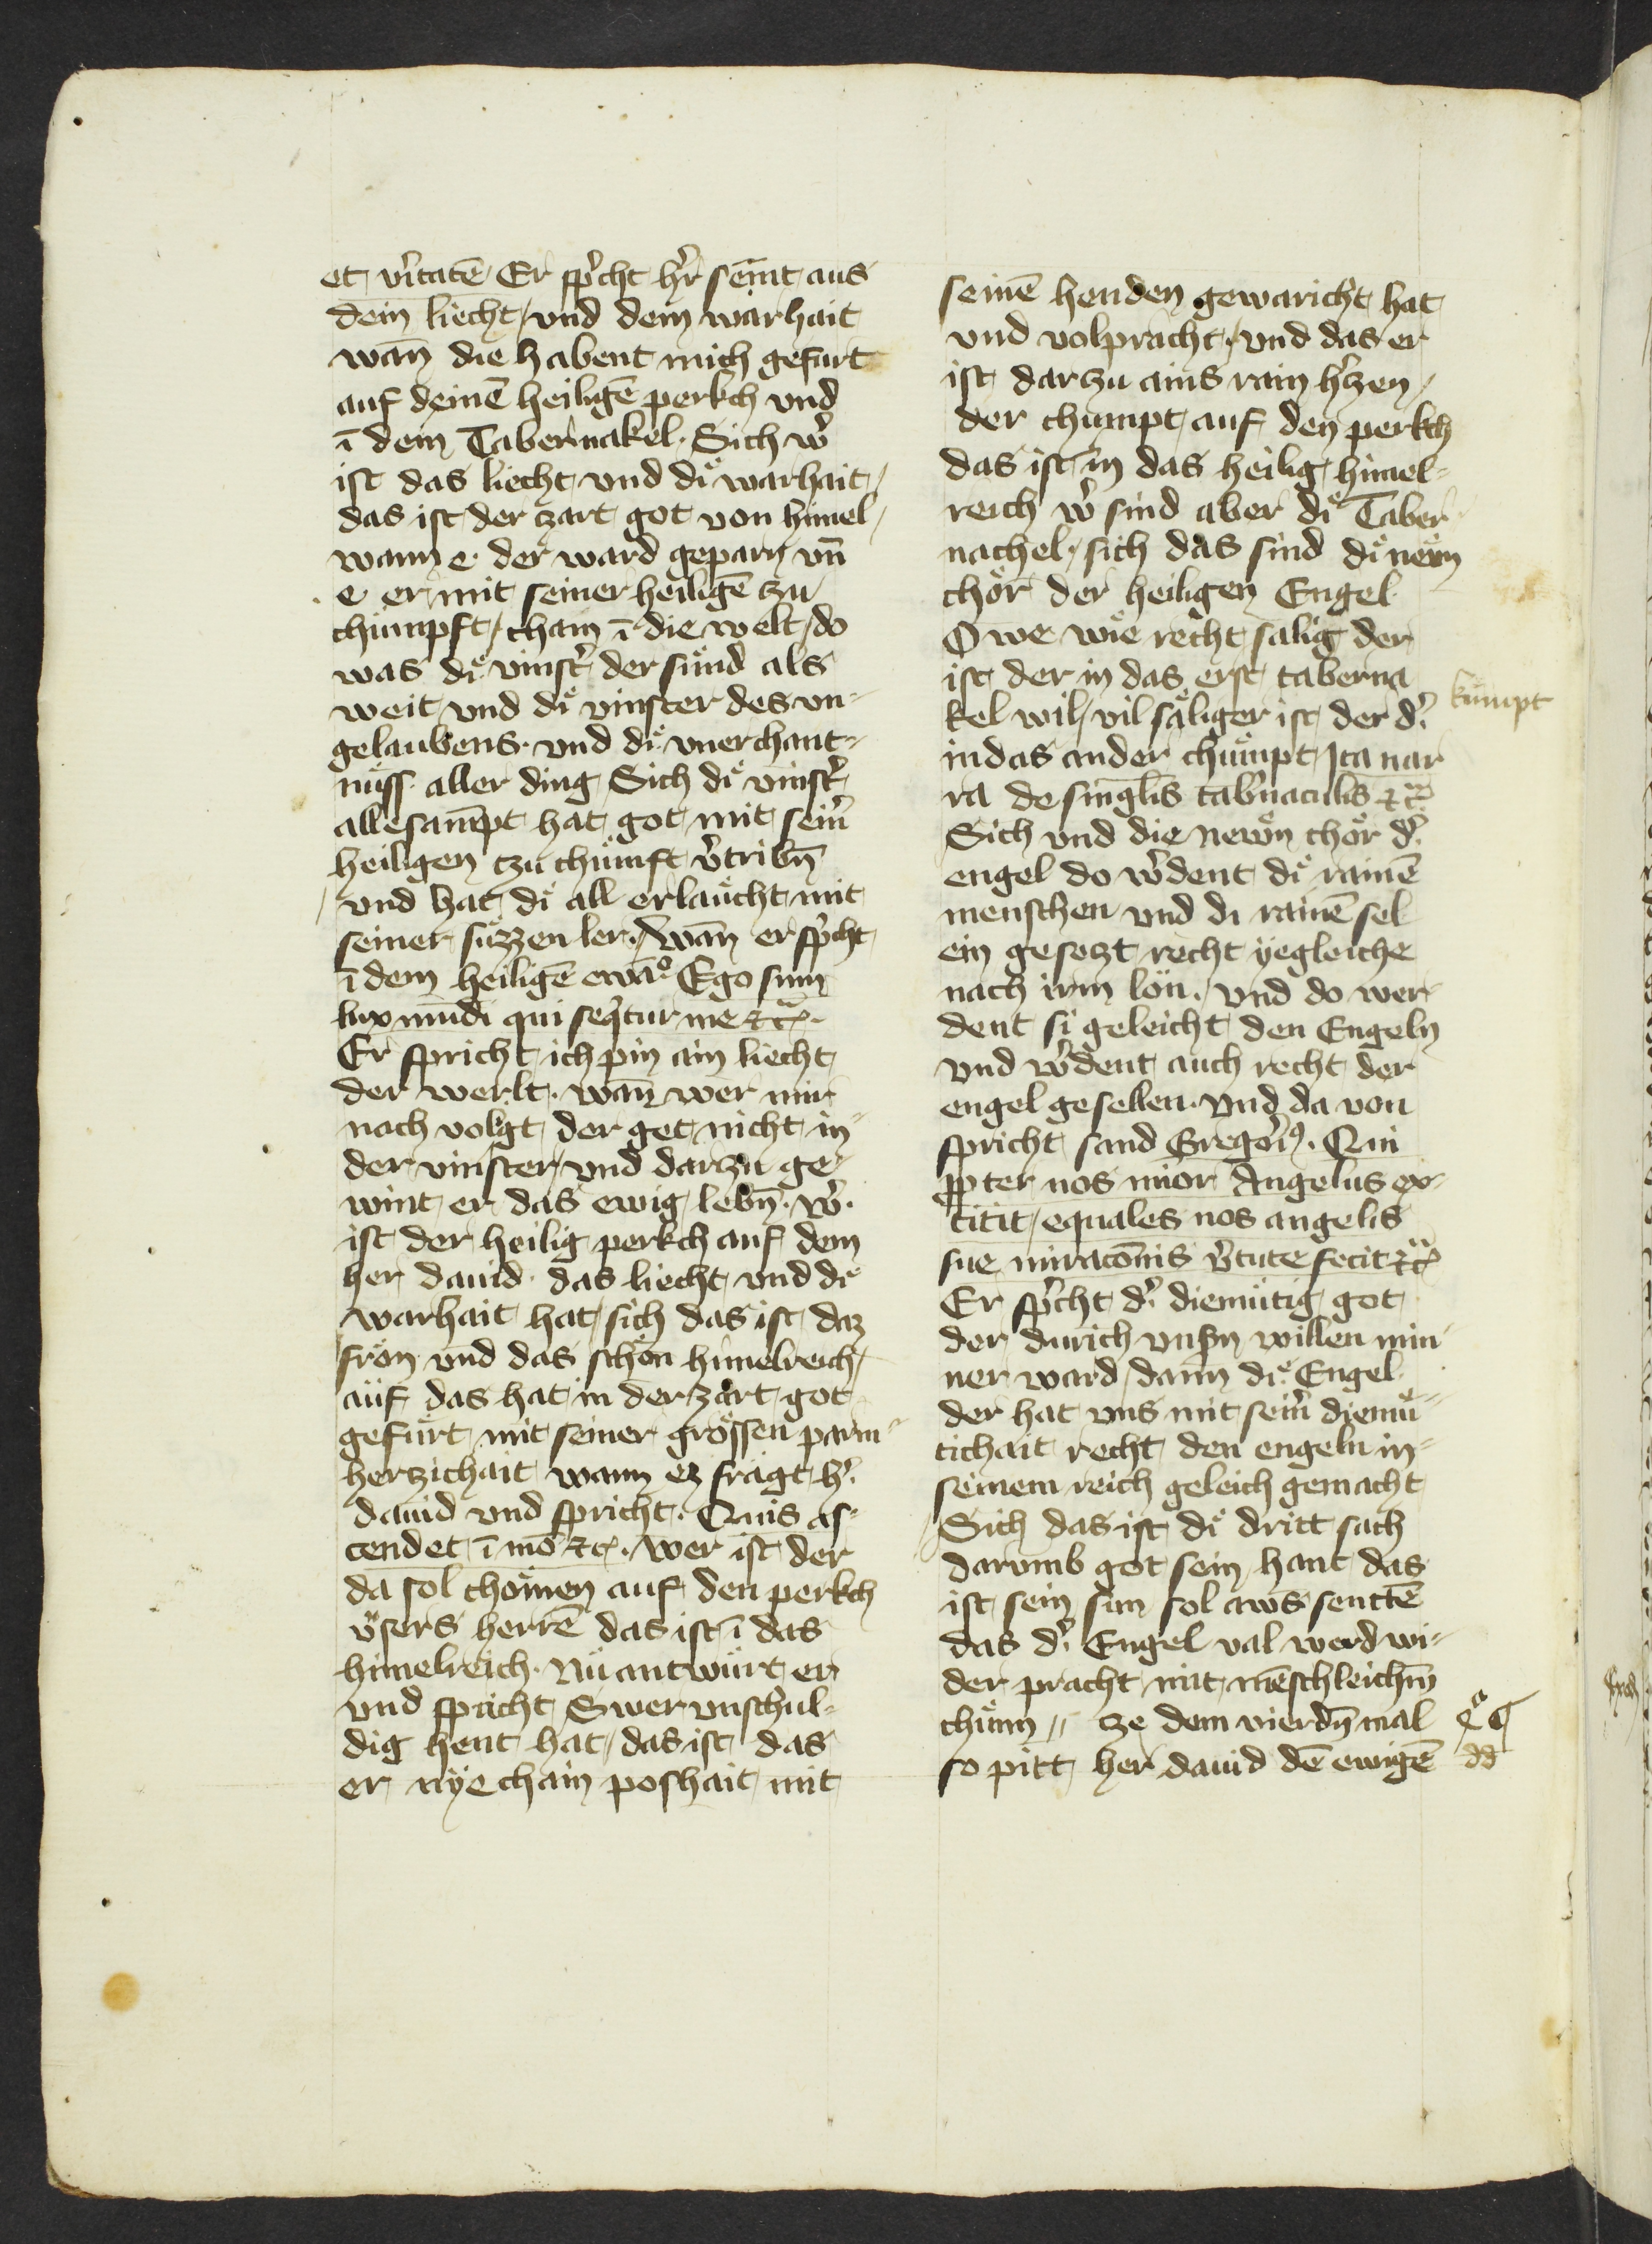 et v̉itatē Er sp̉cht hr̉ semt aus
dein liecht / vnd dein warhait
wan̄ die habent mich gefürt
auf deinē heiligē perkch vnd
ī dein Tabernakel · Sich w̉
ist das liecht vnd dͤi warhait /
das ist der zart got von himel /
wann e · der ward geparn vn̄
e er mit seiner heiligē zu
chümpft / cham ī die welt / do
was dͤi vinst̉ der sünd als
weit vnd dͤi vinster des vn-
gelaubens · vnd dͤi vnerchant-
nüss aller ding Sich dͤi vinst̉
alle sampt hat got mit sein̉
heiligen tzu chümft v̉tribn̄
vnd hat dͤi all erlaücht mit
seiner süzzen ler · / wan̄ er sp̉cht
ī dem heiligē ewāͦ Ego sum
lux mūdi qui seq̄tur me etc̄ ·
Er spricht ich pin ain liecht
der werlt · wan̄ wer mir
nach volgt der get nicht in-
der vinster / vnd darzu ge-
wint er das ewig lebn̄ · w̉ ·
ist der heilig perkch auf dem
her dauid · das liecht vnd dͤi
warhait hat / sich das ist daz
frön vnd das schön himelreich /
auf das hat in der zart got
gefürt mit seiner grössen parm-
hertzichait wann ez fragt h̉
dauid vnd spricht · Quis as-
cendet ī mō etc · wer ist der
da sol chömen auf den perkch
v̈sers herrē das ist ī das
himelreich · Nu antwürt er
vnd sp̉icht Swer vnschul-
dig hent hat / das ist das
er nye chain poshait mit
seinē henden gewaricht hat
vnd volpracht · vnd das er
ist darzu ains rain h̉zen /
der chumpt auf den perkch
das ist in das heilig himel-
reich w̉ sind aber dͤi Taber
nachel · sich das sind dͤi neün
chör der heiligen Engel ·
O we wie recht salig der
ist der in das erst taberna
kel wil / vil säliger ist der d̉
kümpt
in das ander chümpt Ita nar
ra de singl̄is tabn̉aculis etc̄
Sich vnd die newn chör d̉
engel do w̉dent dͤi rainē
menschen vnd di rainē sel
ein gesetzt recht yegleiche
nach irm lön · / vnd do wer-
dent si geleicht den Engeln
vnd w̉dent auch recht der
engel gesellen · vnd da von
spricht sand Gregori9 · Qui
ꝓpter nos minor Angelus ex-
titit / equales nos angelis
sue miracōnis v̉tute fecit etc̄
Er sp̉cht d̉ diemütig got
der durich vnsn̉ willen min
ner ward / dann dͤi Engel ·
der hat vns mit sein̉ diemü-
tichait recht den engeln in-
seinem reich geleich gemacht
Sich das ist dͤi dritt sach
darvmb got sein hant das
ist sein sun sol aws senttē
das d̉ Engel val werd wi-
der pracht mit mēschleichm̄
chünn // ze dem vierdn̄ mal
so pitt her dauid dē ewigē
dd